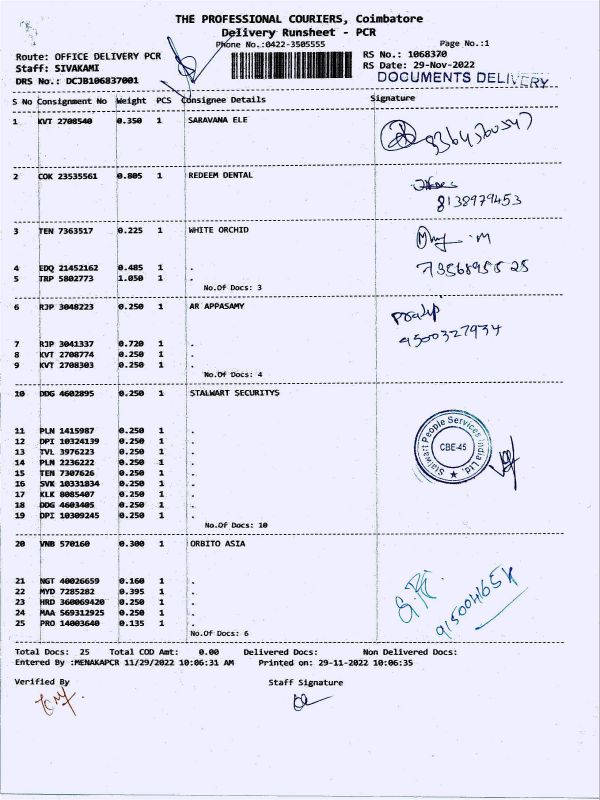 THE PROFESSIONAL COURIERS, Coimbatore
Delivery Runsheet - PCR
Phone No.:0422-3505555
Page No.:1
Route: OFFICE DELIVERY PCR
RS No.: 1068370
Staff: SIVAKAMI
RS Date: 29-Nov-2022
DRS No.: DCJB106837001
DOCUMENTS DELIVERY
S No Consignment No Weight PCS Consignee Details Signature
1 KVT 2708540 0.350 1 SARAVANA ELE
2 COK 23535561 0.805 1 REDEEM DENTAL
8138979453
3 TEN 7363517 0.225 1 WHITE ORCHID
4 EDQ 21452162 0.485 1 .
5 TRP 5802773 1.050 1 .
No.Of Docs: 3
6 RJP 3048223 0.250 1 AR APPASAMY
9500327934
7 RJP 3041337 0.720 1 .
8 KVT 2708774 0.250 1 .
9 KVT 2708303 0.250 1 .
No.Of Docs: 4
10 DDG 4602895 0.250 1 STALWART SECURITYS
11 PLN 1415987 0.250 1 .
12 DPI 10324139 0.250 1 .
13 TVL 3976223 0.250 1 .
14 PLN 2236222 0.250 1 .
15 TEN 7307626 0.250 1 .
16 SVK 10331834 0.250 1 .
17 KLK 8085407 0.250 1 .
18 DDG 4603405 0.250 1 .
19 DPI 10309245 0.250 1 .
Stalwart People Services India Ltd.
CBE-45
No.Of Docs: 10
20 VNB 570160 0.300 1 ORBITO ASIA
21 NGT 40026659 0.160 1 .
22 MYD 7285282 0.395 1 .
23 HRD 360069420 0.250 1 .
24 MAA 569312925 0.250 1 .
25 PRO 14003640 0.135 1 .
No.Of Docs: 6
Total Docs: 25 Total COD Amt: 0.00 Delivered Docs: Non Delivered Docs:
Entered By :MENAKAPCR 11/29/2022 10:06:31 AM Printed on: 29-11-2022 10:06:35
Verified By Staff Signature